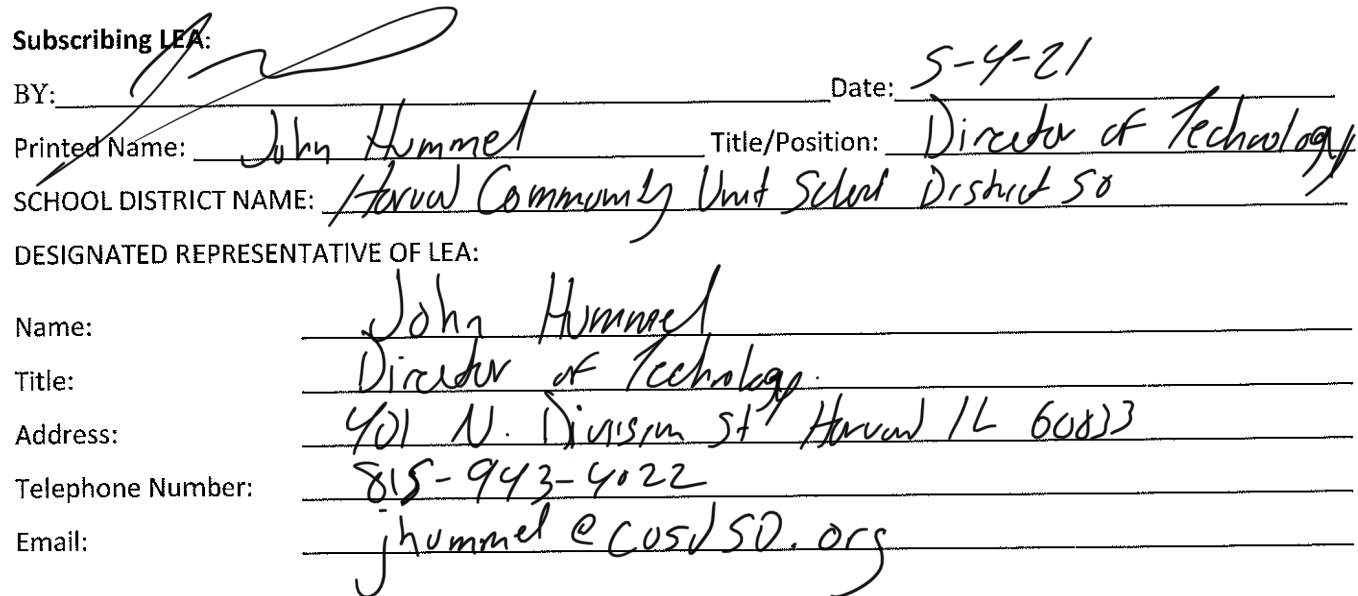 Subscribing LEA:
BY: Date: 5-4-21
Printed Name: John Hummel Title/Position: Director of Technology
SCHOOL DISTRICT NAME: Harvard Community Unit School District 50
DESIGNATED REPRESENTATIVE OF LEA:
Name: John Hummel
Title: Director of Technology
Address: 401 N. Division St Harvard IL 60033
Telephone Number: 815-943-4022
Email: jhummel@cusd50.org